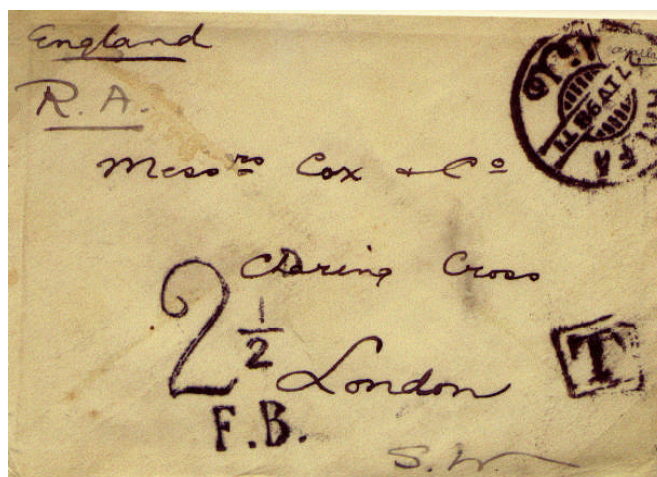 England
R. A.
Messrs Cox & Co
Charing Cross
2 1/2
London
F.B.
T
S.W.